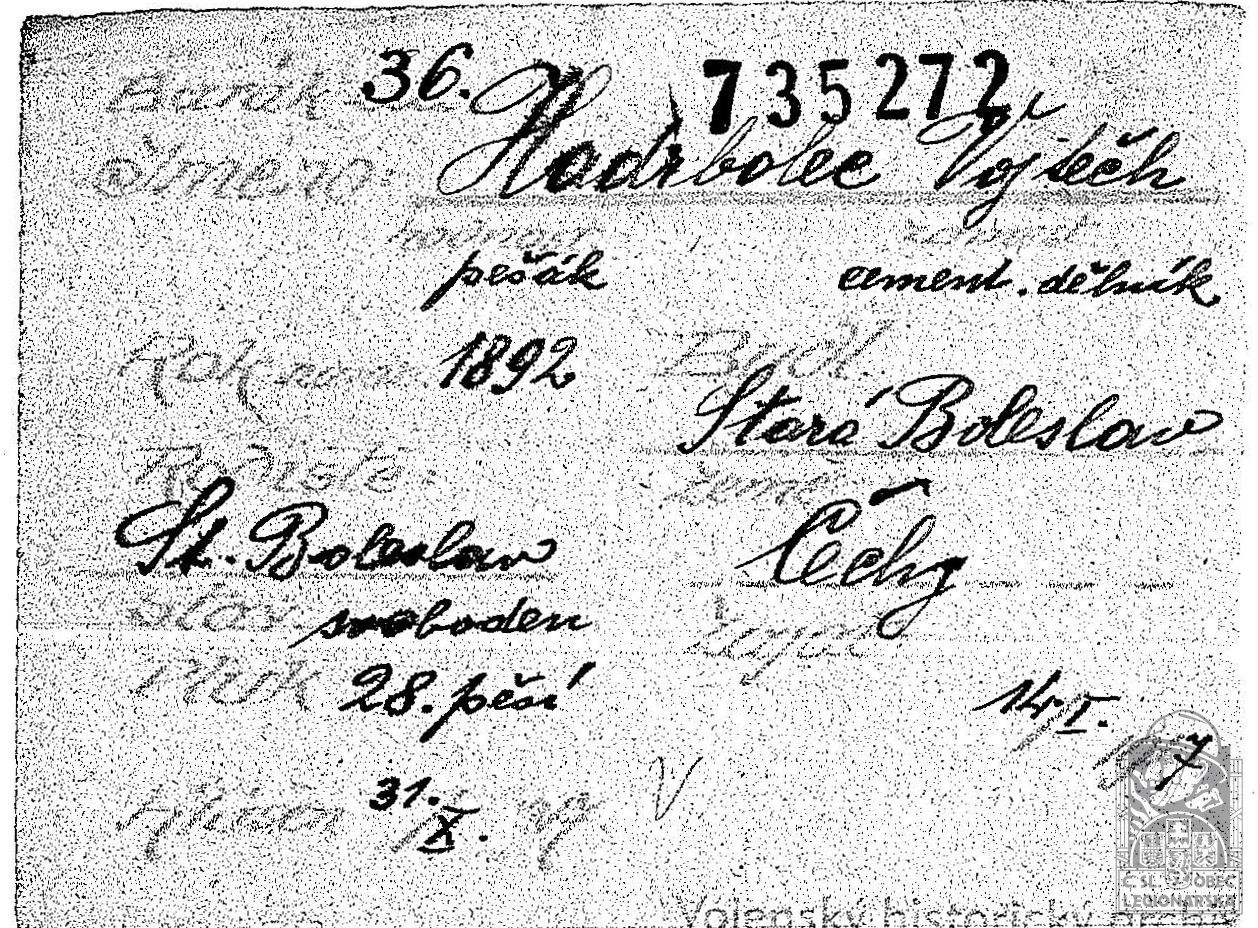 Barák 36. 735272
Jméno: Hadrbolec Vojtěch
pešák cement. dělník
Rok naroz. 1892 Bydl.
Stará Boleslav
Rodiště: země:
St. Boleslav Čechy
Stav: svoboden zajat
Pluk 28. pěší 14/I. 17
31./X.
Vojenský historický archiv
Č SL OBEC
LEGIONÁŘSKÁ